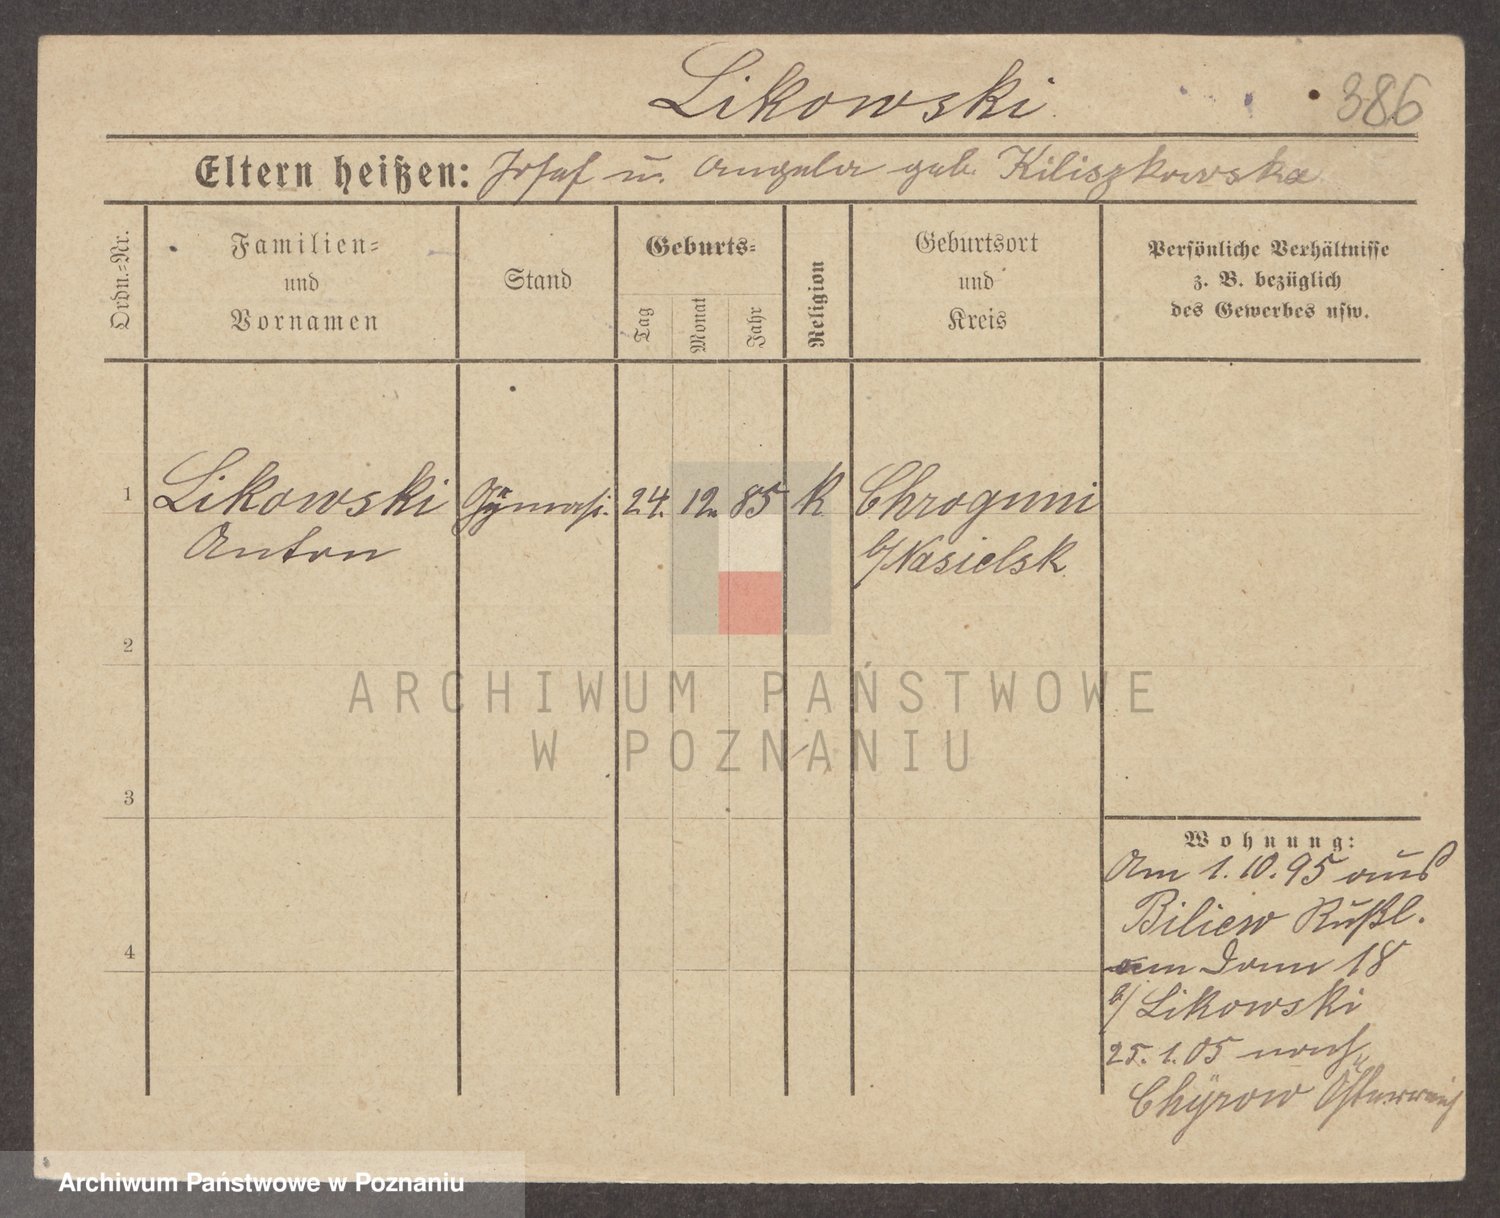 Likowski
386
Eltern heißen: Josef u. Angela geb. Kiliszkowska
Ordn.=Nr.
Familien=
und
Vornamen
Stand
Geburts=
Tag
Monat
Jahr
Religion
Geburtsort
und
Kreis
Persönliche Verhältnisse
z. B. bezüglich
des Gewerbes usw.
1 Likowski Gymnas. 24. 12. 85 K Chrogunni
Anton b/Nasielsk
2
ARCHIWUM PAŃSTWOWE
W POZNANIU
3
Wohnung:
Am 1.10.95 aus
Biliew Rußl.
4
am Dom 18
b/ Likowski
25.1.05 nach
Chyrow Österreich
Archiwum Państwowe w Poznaniu